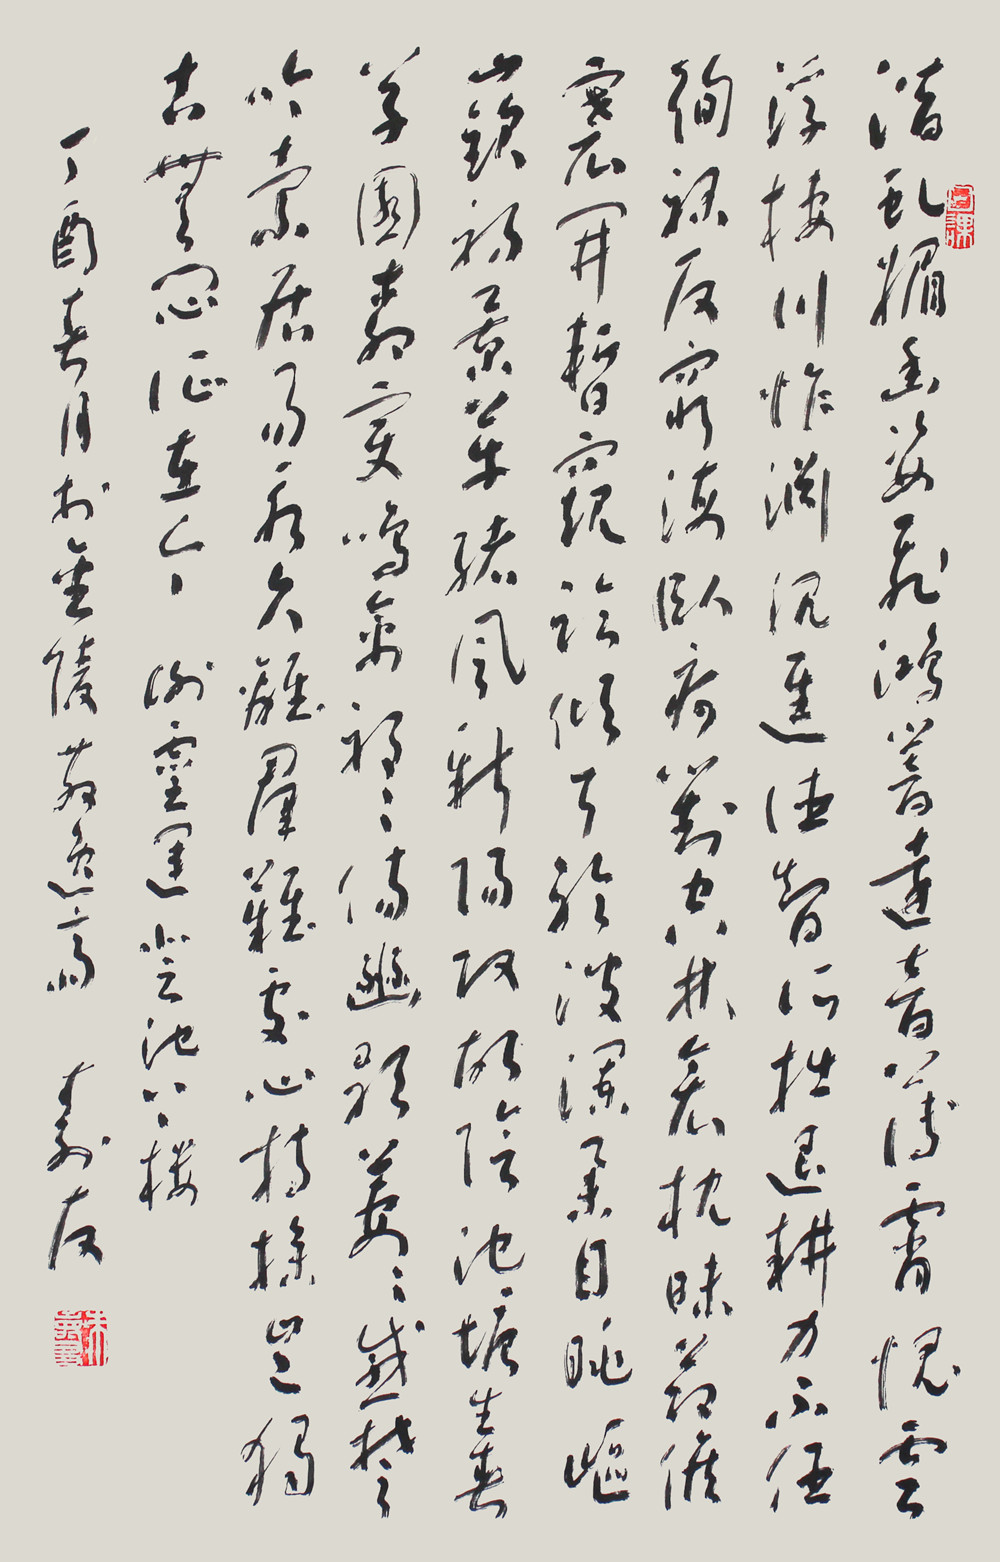 潛虬媚幽姿飛鴻響遠音薄霄愧雲
浮棲川怍淵沉進德智所拙退耕力不任
徇祿反窮海臥痾對空林衾枕昧節候
褰開暫窺臨傾耳聆波瀾舉目眺嶇
嶔初景革緒風新陽改故陰池塘生春
草園柳變鳴禽祁〻傷豳歌萋〻感楚
吟索居易永久離羣難處心持操豈獨
古無悶征在今 謝靈運登池上樓
丁酉春月於金陵散逸齋 壽友